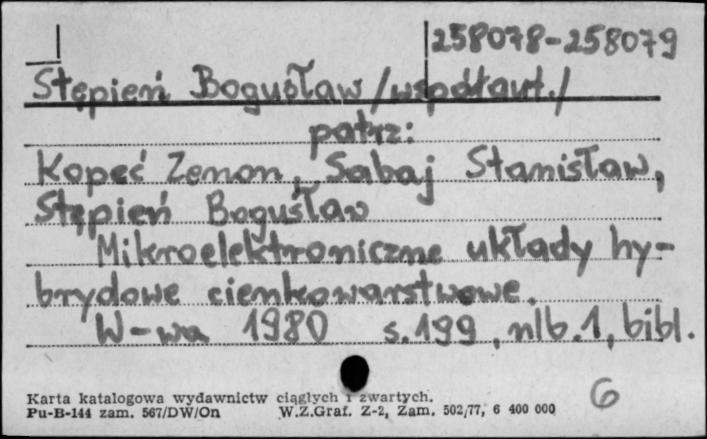 258078-258079
Stępień Bogusław /współaut./
patrz:
Kopeć Zenon, Sabaj Stanisław,
Stępień Bogusław
Mikroelektroniczne układy hy-
brydowe cienkowarstwowe.
W-wa 1980 s.199, nlb.1, bibl.
Karta katalogowa wydawnictw ciągłych i zwartych.
Pu-B-144 zam. 567/DW/On W.Z.Graf. Z-2, Zam. 502/77, 6 400 000
6